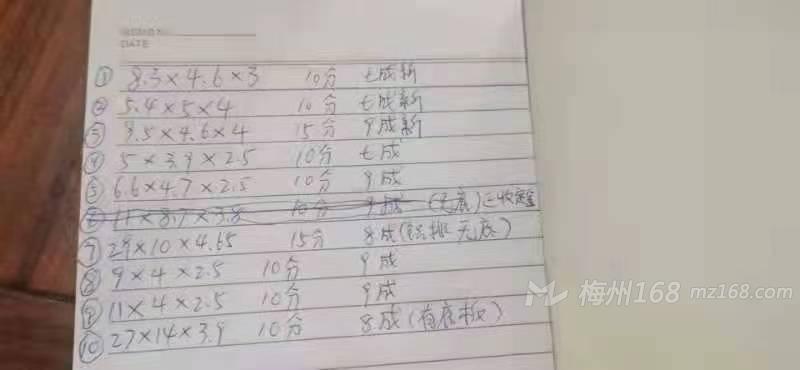 DATE
① 8.3×4.6×3 10分 七成新
② 5.4×5×4 10分 七成新
③ 9.5×4.6×4 15分 9成新
④ 5×3.9×2.5 10分 七成
⑤ 6.6×4.7×2.5 10分 9成
⑥ 11×8.7×3.8 10分 9成 (无底) 已收定金
⑦ 29×10×4.65 15分 8成(铝排无底)
⑧ 9×4×2.5 10分 9成
⑨ 11×4×2.5 10分 9成
⑩ 27×14×3.9 10分 8成(有底板)
梅州168 mz168.com